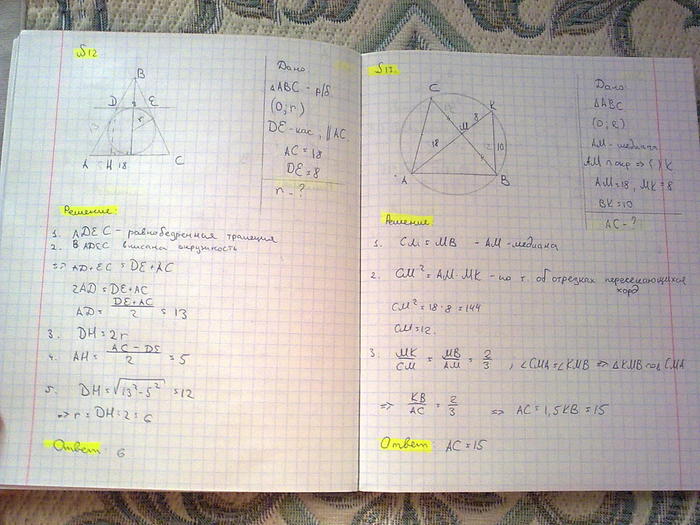 S 12
B
D E
r
A H 18 C
Дано
△ABC - р/б.
(O; r)
DE - кас, || AC
AC = 18
DE = 8
r - ?
Решение:
1. ADEC - равнобедренная трапеция
2. В ADEC вписана окружность
=> AD + EC = DE + AC
2AD = DE + AC
AD = (DE + AC)/2 = 13
3. DH = 2r
4. AH = (AC - DE)/2 = 5
5. DH = √(13² - 5²) = 12
=> r = DH : 2 = 6
Ответ 6
S 13.
C
K
12 8
M
18 10
A B
Дано:
△ABC
(O; R)
AM - медиана
AM ∩ окр => (·) K
AM = 18, MK = 8
BK = 10
AC - ?
Решение:
1. CM = MB - AM - медиана
2. CM² = AM · MK - по т. об отрезках пересекающихся
хорд
CM² = 18 · 8 = 144
CM = 12.
3. MK/CM = MB/AM = 2/3 , ∠CMA = ∠KMB => △KMB под CMA
=> KB/AC = 2/3 => AC = 1,5KB = 15
Ответ: AC = 15